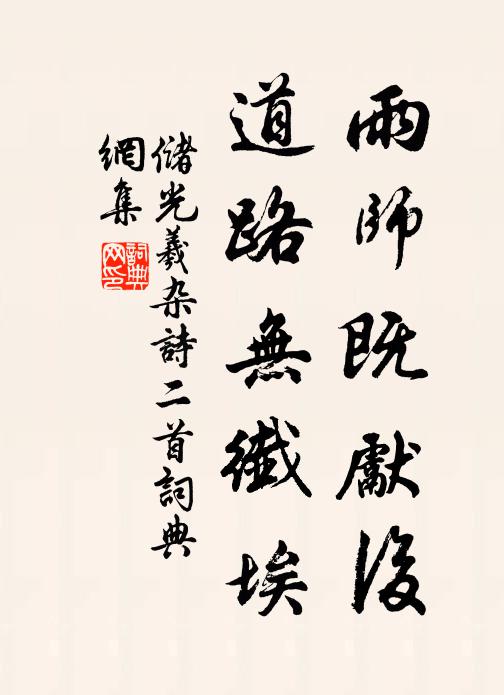 雨師既獻後
道路無纖埃
儲光羲杂詩二首詞典
網集
詞典
网印